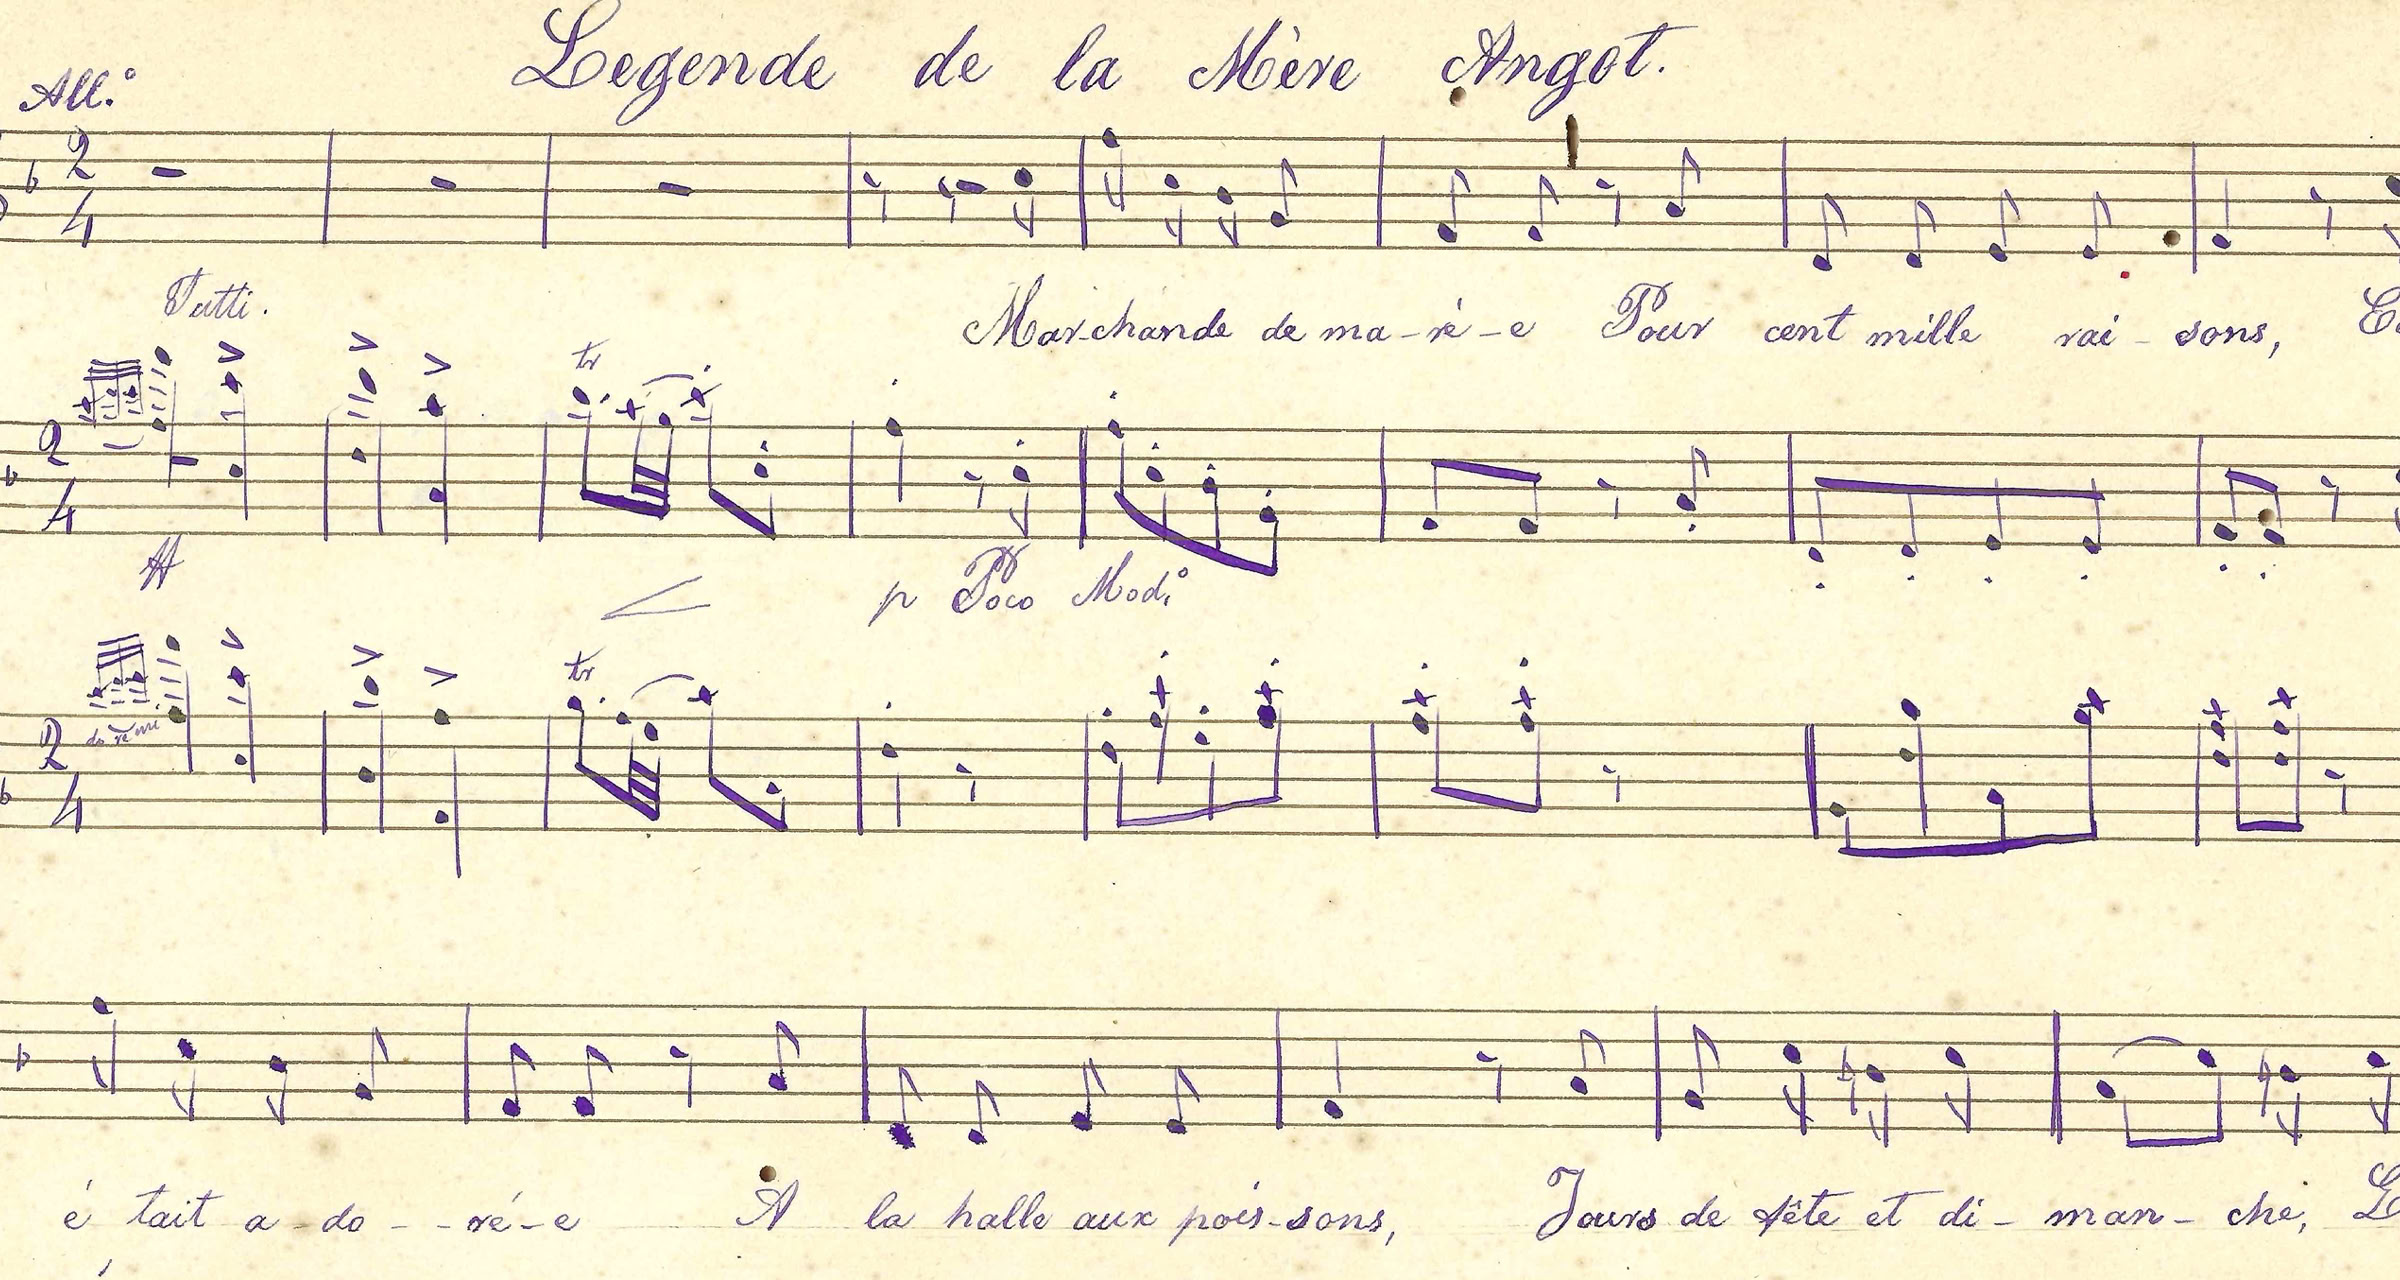 Legende de la Mère Angot.
All.º
2
4
Tutti.
Marchande de ma-ré-e Pour cent mille rai-sons,
tr
2
4
ff
p Poco Mod.º
tr
do re mi
2
4
é tait a-do--ré-e A la halle aux pois-sons, Jours de fête et di-man-che,